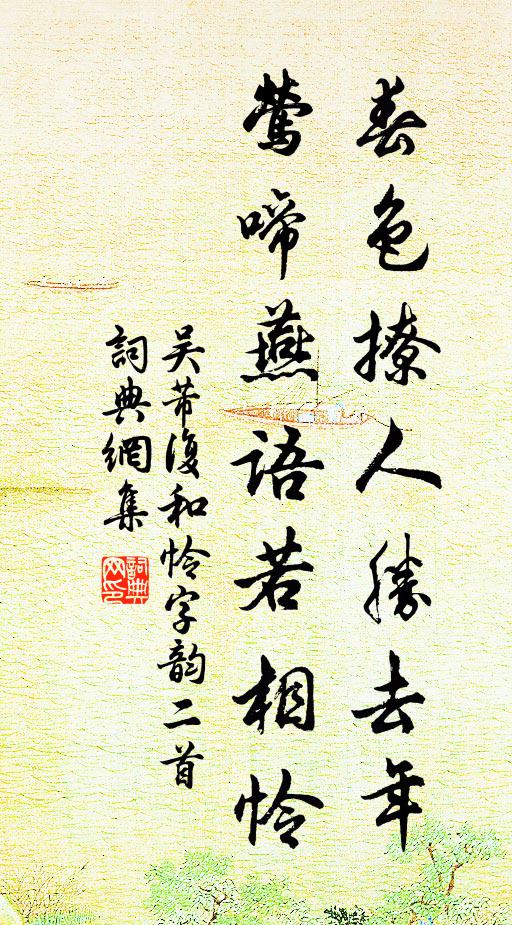 春色撩人勝去年
鶯啼燕語若相怜
吴芾復和怜字韵二首
詞典網集
詞典网印